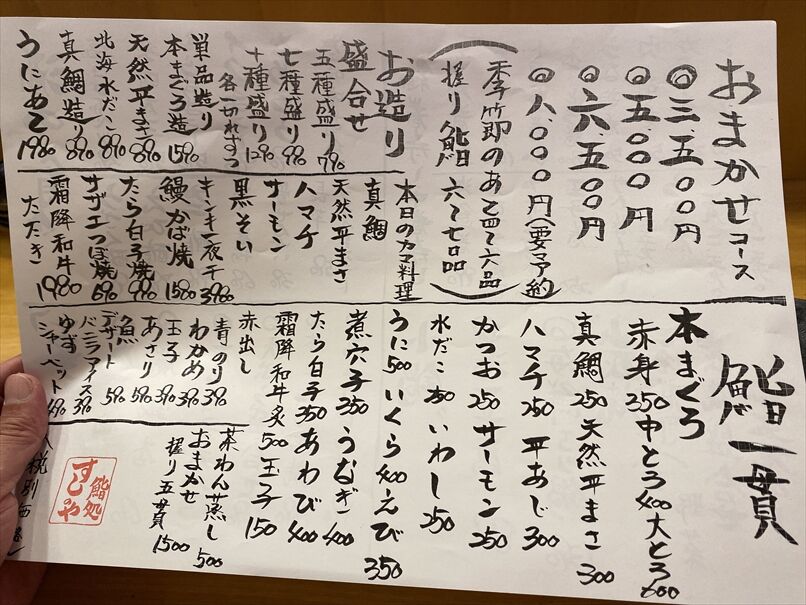 おまかせコース
◎三、五〇〇円
◎五、〇〇〇円
◎六、五〇〇円
◎八、〇〇〇円（要予約）
（季節のあて四〜六品
握り鮨 六〜七品）
お造り
盛合せ
五種盛り 790
七種盛り 990
十種盛り 1290
各一切れずつ
単品造り
本まぐろ造 1590
天然平まさ 890
北海水だこ 890
真鯛造り 890
うにあて 1980
本日のカマ料理
真鯛
天然平まさ
ハマチ
サーモン
黒そい
キンキ一夜干 3980
鰻かば焼 1580
たら白子焼 990
サザエつぼ焼 690
霜降和牛
たたき 1980
鮨一貫
本まぐろ
赤身 350 中とろ 400 大とろ 600
真鯛 250 天然平まさ 300
ハマチ 250 平あじ 300
かつお 250 サーモン 250
水だこ 250 いわし 250
うに 500 いくら 400 えび 350
煮穴子 350 うなぎ 400
たら白子 350 あわび 400
霜降和牛炙 500 玉子 150
赤出し
青のり 390
わかめ 390
玉子 390
あさり 590
魚 590
デザート
バニラアイス 390
ゆず
シャーベット 490
茶わん蒸し 500
おまかせ
握り五貫 1500
鮨処
すしのや